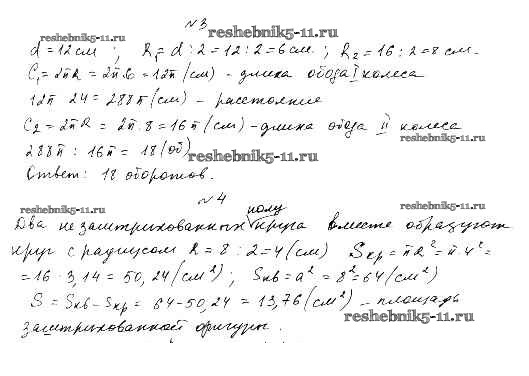 №3
reshebnik5-11.ru reshebnik5-11.ru
d = 12 см ; R₁ = d : 2 = 12 : 2 = 6 см. ; R₂ = 16 : 2 = 8 см.
C₁ = 2πR = 2π·6 = 12π (см) - длина обода I колеса
12π · 24 = 288π (см) - расстояние
C₂ = 2πR = 2π · 8 = 16π (см) - длина обода II колеса
reshebnik5-11.ru
288π : 16π = 18 (об) reshebnik5-11.ru
Ответ: 18 оборотов.
№4
reshebnik5-11.ru полу reshebnik5-11.ru
Два незаштрихованных круга вместе образуют
круг с радиусом R = 8 : 2 = 4 (см) Sкр = πR² = π 4² =
= 16 · 3,14 = 50,24 (см²) ; Sкв = a² = 8² = 64 (см²)
S = Sкв - Sкр = 64 - 50,24 = 13,76 (см²) - площадь
заштрихованной фигуры. reshebnik5-11.ru